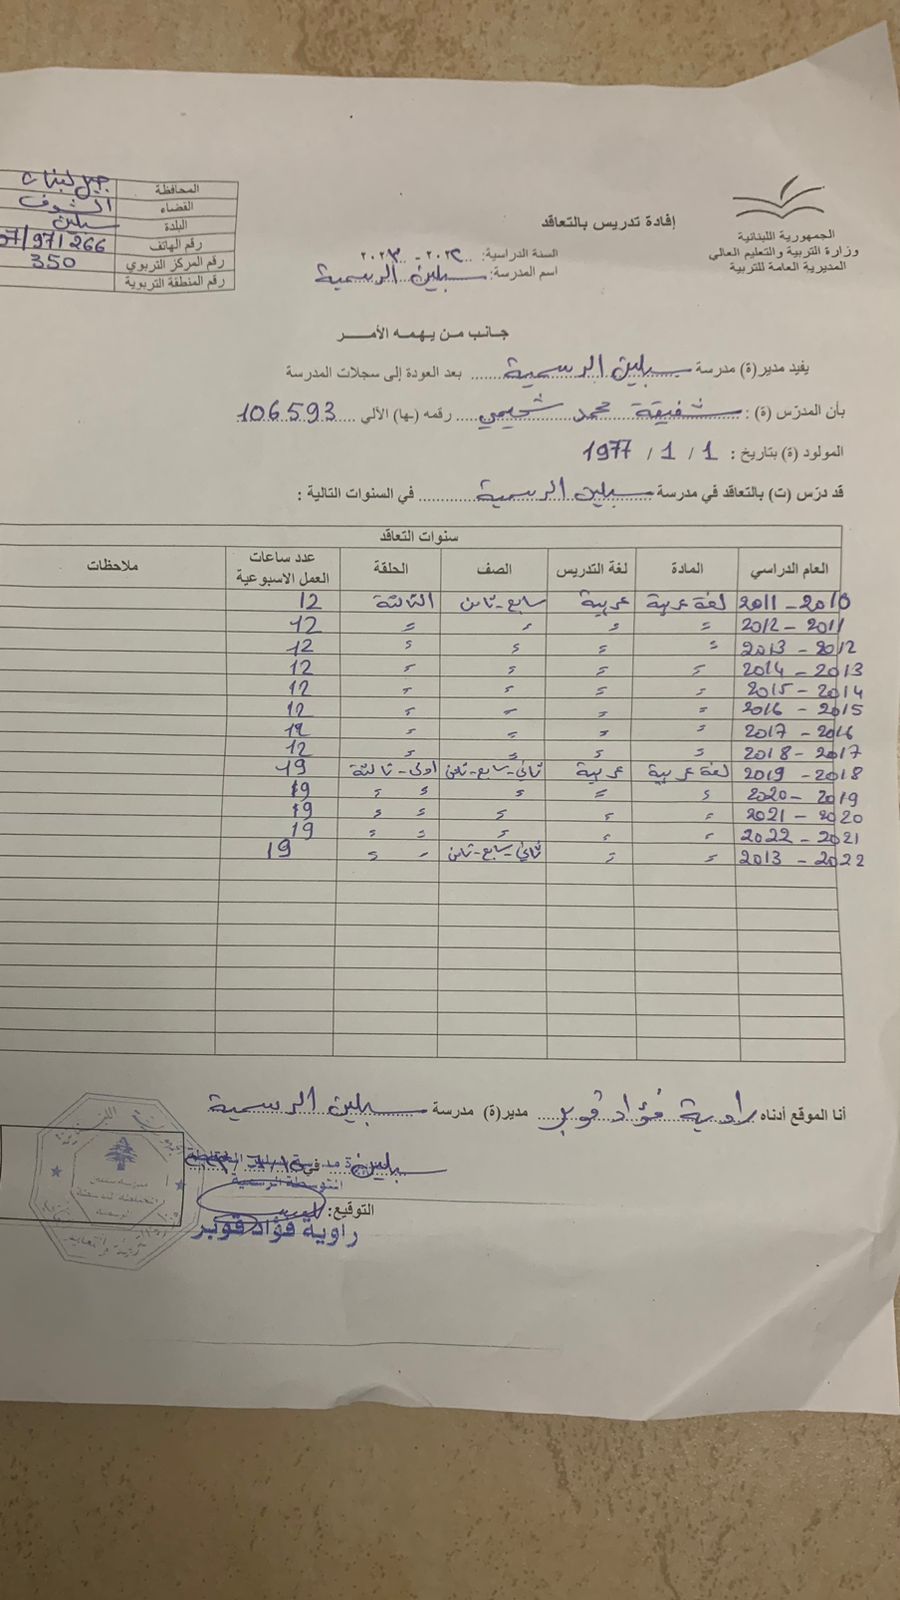 الجمهورية اللبنانية
وزارة التربية والتعليم العالي
المديرية العامة للتربية
إفادة تدريس بالتعاقد
السنة الدراسية: ٢٠٢٢ - ٢٠٢٣
اسم المدرسة: سبلين الرسمية
المحافظة جبل لبنان
القضاء الشوف
البلدة سبلين
رقم الهاتف 07/971266
رقم المركز التربوي 350
رقم المنطقة التربوية
جانب من يهمه الأمر
يفيد مدير(ة) مدرسة سبلين الرسمية بعد العودة إلى سجلات المدرسة
بأن المدرّس (ة): شفيقة محمد شحيمي رقمه (ـها) الآلي 106593
المولود (ة) بتاريخ : 1 / 1 / 1977
قد درّس (ت) بالتعاقد في مدرسة سبلين الرسمية في السنوات التالية :
سنوات التعاقد
العام الدراسي المادة لغة التدريس الصف الحلقة عدد ساعات العمل الاسبوعية ملاحظات
2010 - 2011 لغة عربية عربية سابع - ثامن الثالثة 12
2011 - 2012 〃 〃 〃 〃 12
2012 - 2013 〃 〃 〃 〃 12
2013 - 2014 〃 〃 〃 〃 12
2014 - 2015 〃 〃 〃 〃 12
2015 - 2016 〃 〃 〃 〃 12
2016 - 2017 〃 〃 〃 〃 12
2017 - 2018 〃 〃 〃 〃 12
2018 - 2019 لغة عربية عربية ثاني - سابع - ثامن أولى - ثالثة 19
2019 - 2020 〃 〃 〃 〃 〃 19
2020 - 2021 〃 〃 〃 〃 〃 19
2021 - 2022 〃 〃 〃 〃 〃 19
2022 - 2013 〃 〃 ثاني - سابع - ثامن 〃 〃 19
أنا الموقع أدناه راوية فؤاد قوبر مدير(ة) مدرسة سبلين الرسمية
سبلين في
المتوسطة الرسمية
التوقيع:
راوية فؤاد قوبر